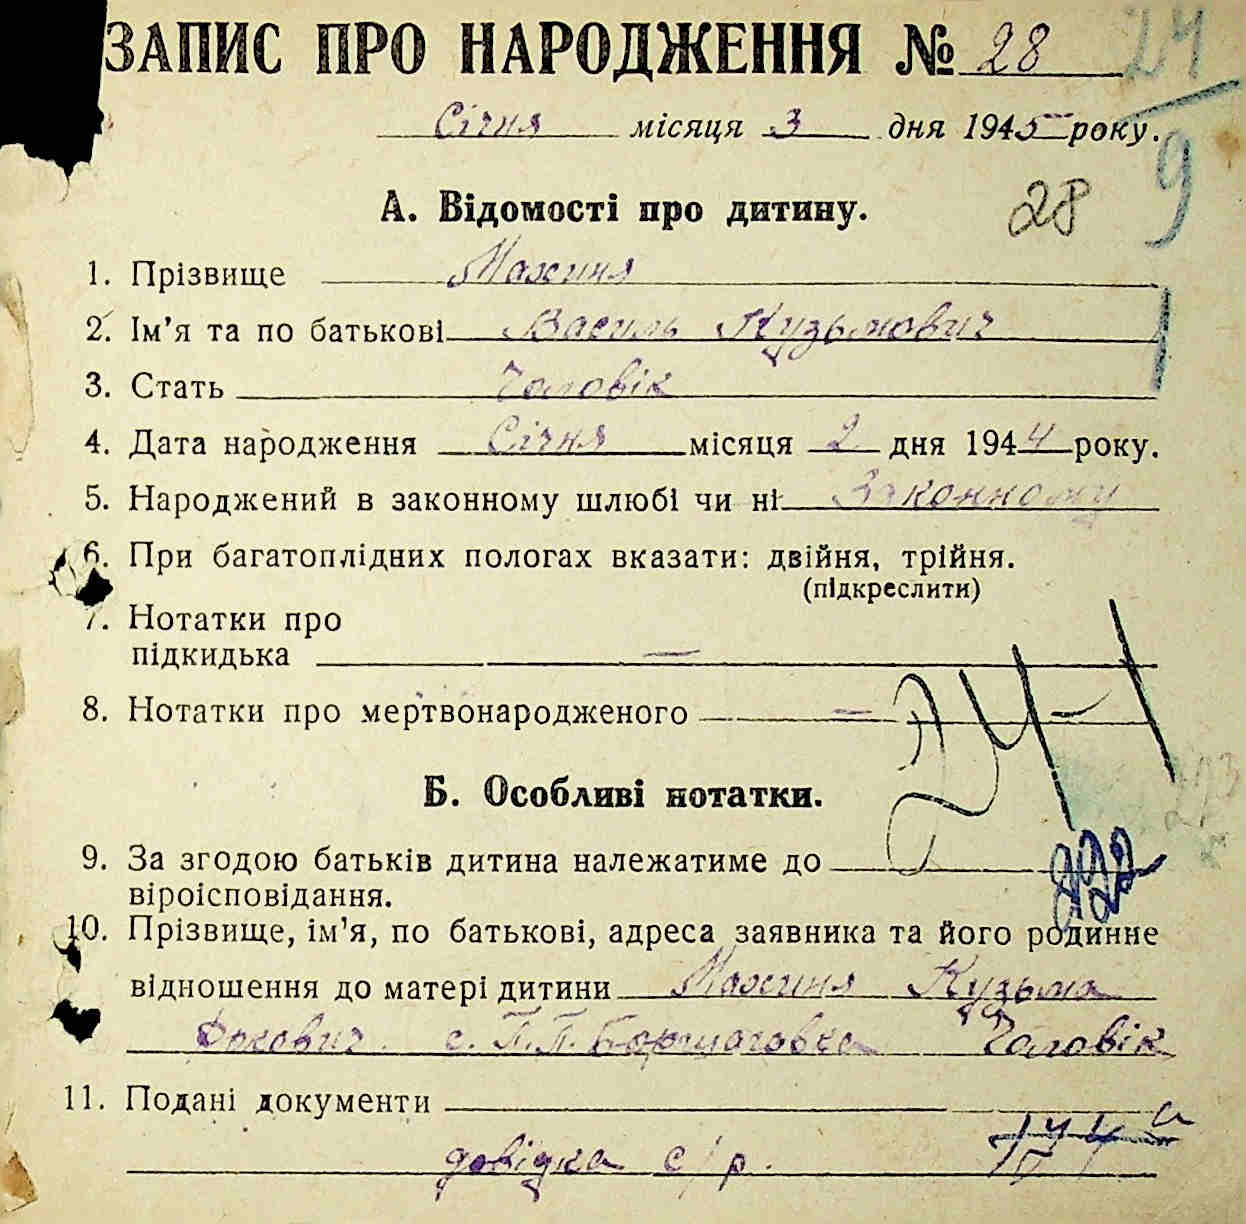 ЗАПИС ПРО НАРОДЖЕННЯ № 28 24
Січня місяця 3 дня 1945 року. 9
А. Відомості про дитину. 28
1. Прізвище Махиня
2. Ім'я та по батькові Василь Кузьмович
3. Стать Чоловік
4. Дата народження Січня місяця 2 дня 1944 року.
5. Народжений в законному шлюбі чи ні Законному
6. При багатоплідних пологах вказати: двійня, трійня.
(підкреслити)
7. Нотатки про
підкидька —
8. Нотатки про мертвонародженого —
Б. Особливі нотатки.
9. За згодою батьків дитина належатиме до
віроісповідання.
10. Прізвище, ім'я, по батькові, адреса заявника та його родинне
відношення до матері дитини Махиня Кузьма
с. П.П. Борщаговка Чоловік
11. Подані документи
довідка с/р.